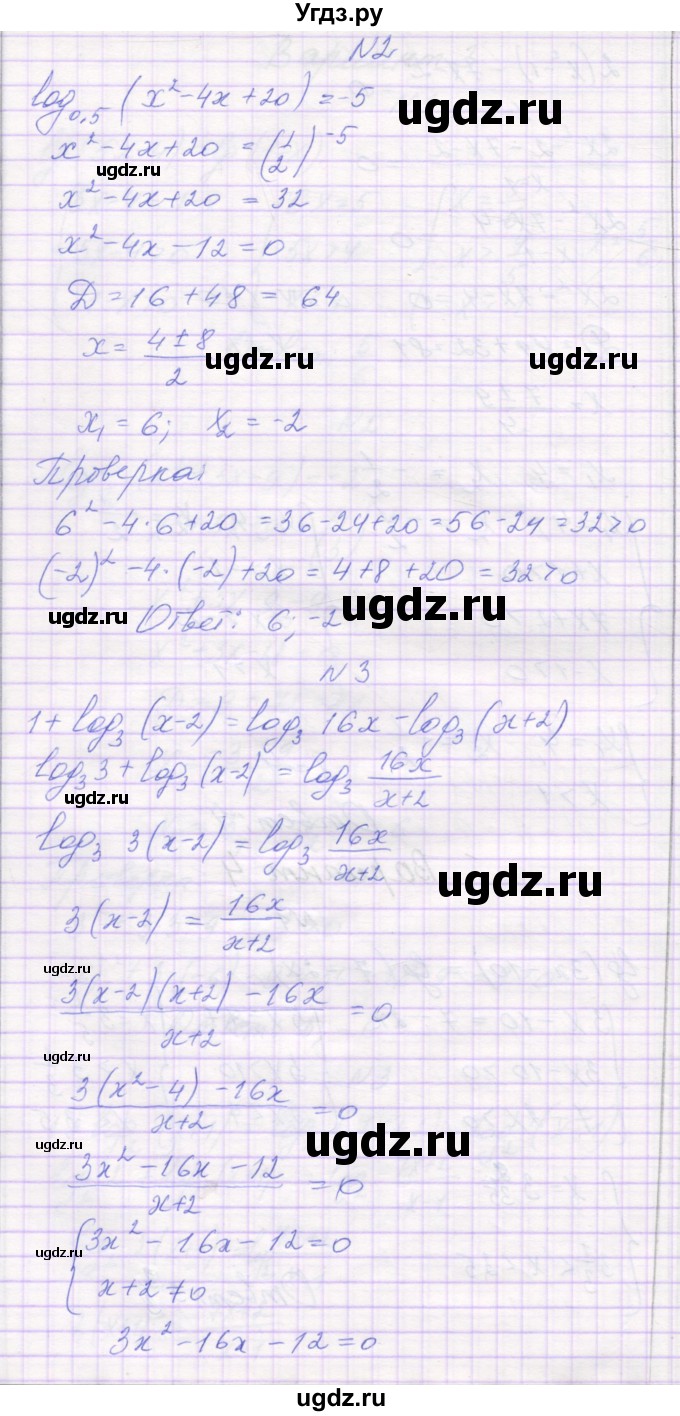 Угдз.ру
N2
log₀,₅ (x² - 4x + 20) = -5
ugdz.ru
x² - 4x + 20 = (1/2)⁻⁵
ugdz.ru
x² - 4x + 20 = 32
x² - 4x - 12 = 0
Д = 16 + 48 = 64
x = (4 ± 8)/2
ugdz.ru ugdz.ru
x₁ = 6; x₂ = -2
Проверка:
6² - 4·6 + 20 = 36 - 24 + 20 = 56 - 24 = 32 > 0
(-2)² - 4·(-2) + 20 = 4 + 8 + 20 = 32 > 0
ugdz.ru ugdz.ru
Ответ: 6; -2
N 3
1 + log₃ (x-2) = log₃ 16x - log₃ (x+2)
ugdz.ru
log₃ 3 + log₃ (x-2) = log₃ 16x/(x+2)
ugdz.ru
log₃ 3(x-2) = log₃ 16x/(x+2)
ugdz.ru
3(x-2) = 16x/(x+2)
ugdz.ru
(3(x-2)(x+2) - 16x)/(x+2) = 0
ugdz.ru ugdz.ru
(3(x² - 4) - 16x)/(x+2) = 0
ugdz.ru ugdz.ru
(3x² - 16x - 12)/(x+2) = 0
ugdz.ru
{ 3x² - 16x - 12 = 0
x + 2 ≠ 0
3x² - 16x - 12 = 0
ugdz.ru